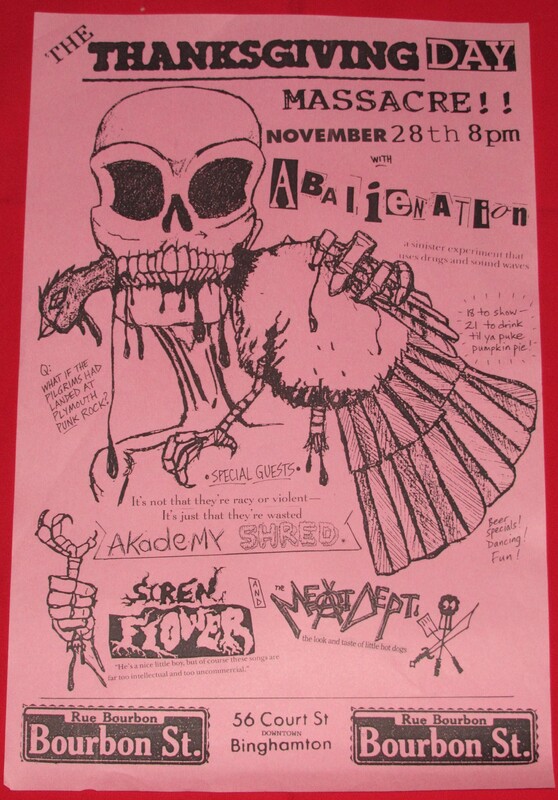 THE
THANKSGIVING DAY
MASSACRE!!
NOVEMBER 28th 8pm
WITH
ABALIENATION
a sinister experiment that
uses drugs and sound waves
18 to show—
21 to drink
til ya puke
pumpkin pie!
Q:
WHAT IF THE
PILGRIMS HAD
LANDED AT
PLYMOUTH
PUNK ROCK?
•SPECIAL GUESTS•
It's not that they're racy or violent—
It's just that they're wasted
AKADEMY SHRED.
Beer
specials!
Dancing!
Fun!
SIREN
FLOWER
"He's a nice little boy, but of course these songs are
far too intellectual and too uncommercial."
AND
THE
MEAT DEPT.
the look and taste of little hot dogs
Rue Bourbon
Bourbon St.
56 Court St
DOWNTOWN
Binghamton
Rue Bourbon
Bourbon St.